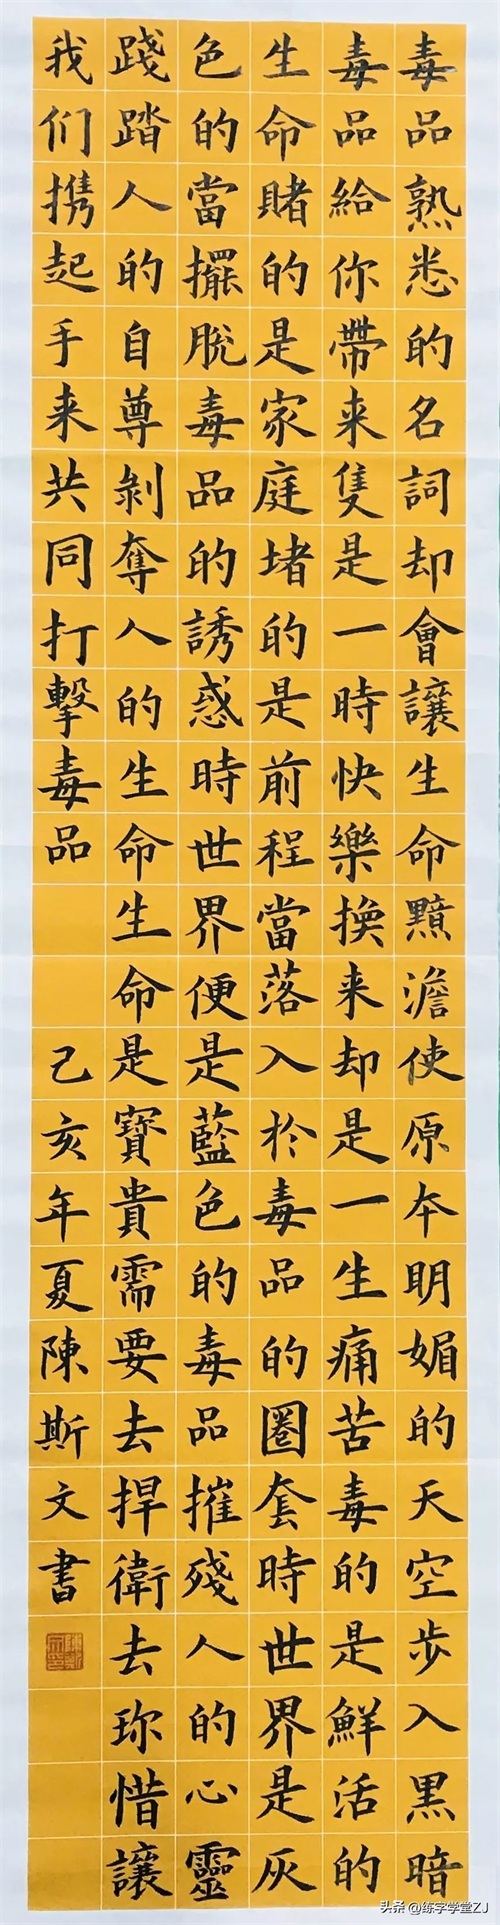 毒品熟悉的名詞却會讓生命黯澹使原本明媚的天空步入黑暗
毒品給你帶来隻是一時快樂換来却是一生痛苦毒的是鮮活的
生命賭的是家庭堵的是前程當落入於毒品的圈套時世界是灰
色的當擺脫毒品的誘惑時世界便是藍色的毒品摧殘人的心靈
踐踏人的自尊剝奪人的生命生命是寶貴需要去捍衛去珎惜讓
我们携起手来共同打擊毒品 己亥年夏陳斯文書
头条 @练字学堂ZJ